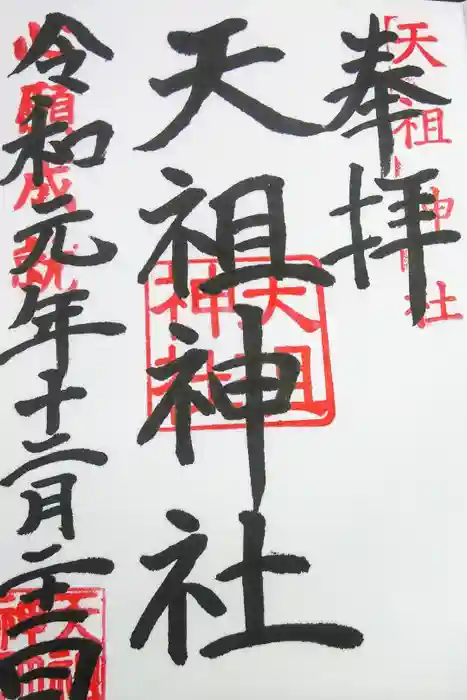 奉拝
天祖神社
天祖神社
天祖神社
令和元年十二月二十二日
願成就